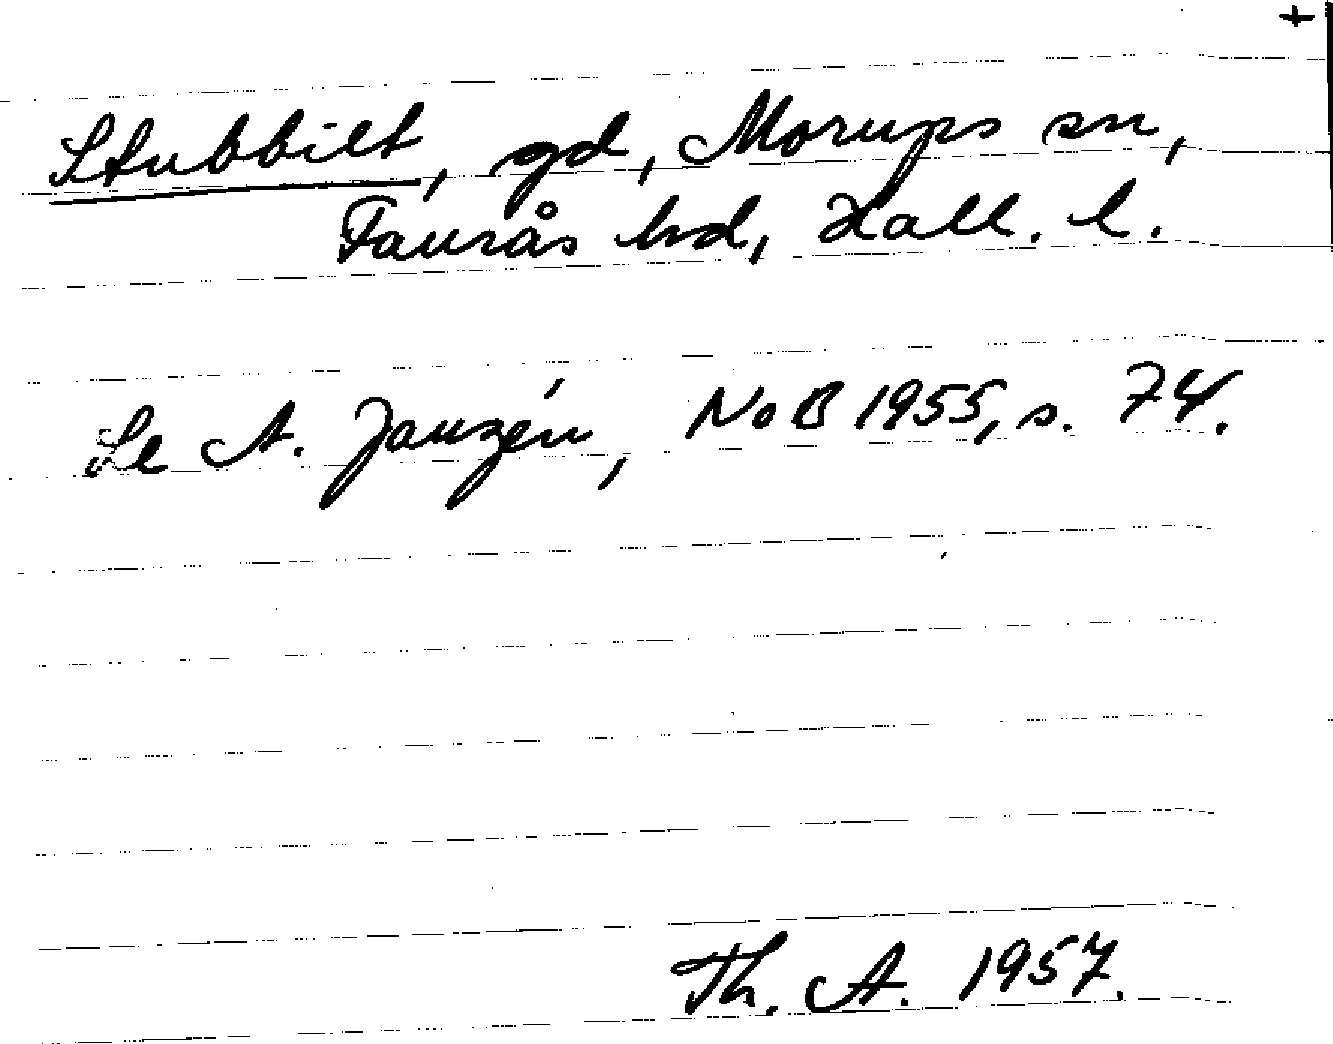 +
Stubbilt, gd, Morups sn,
Faurås hd, Hall. l.
Se A. Janzén, NoB 1955, s. 74.
Th. A. 1957.